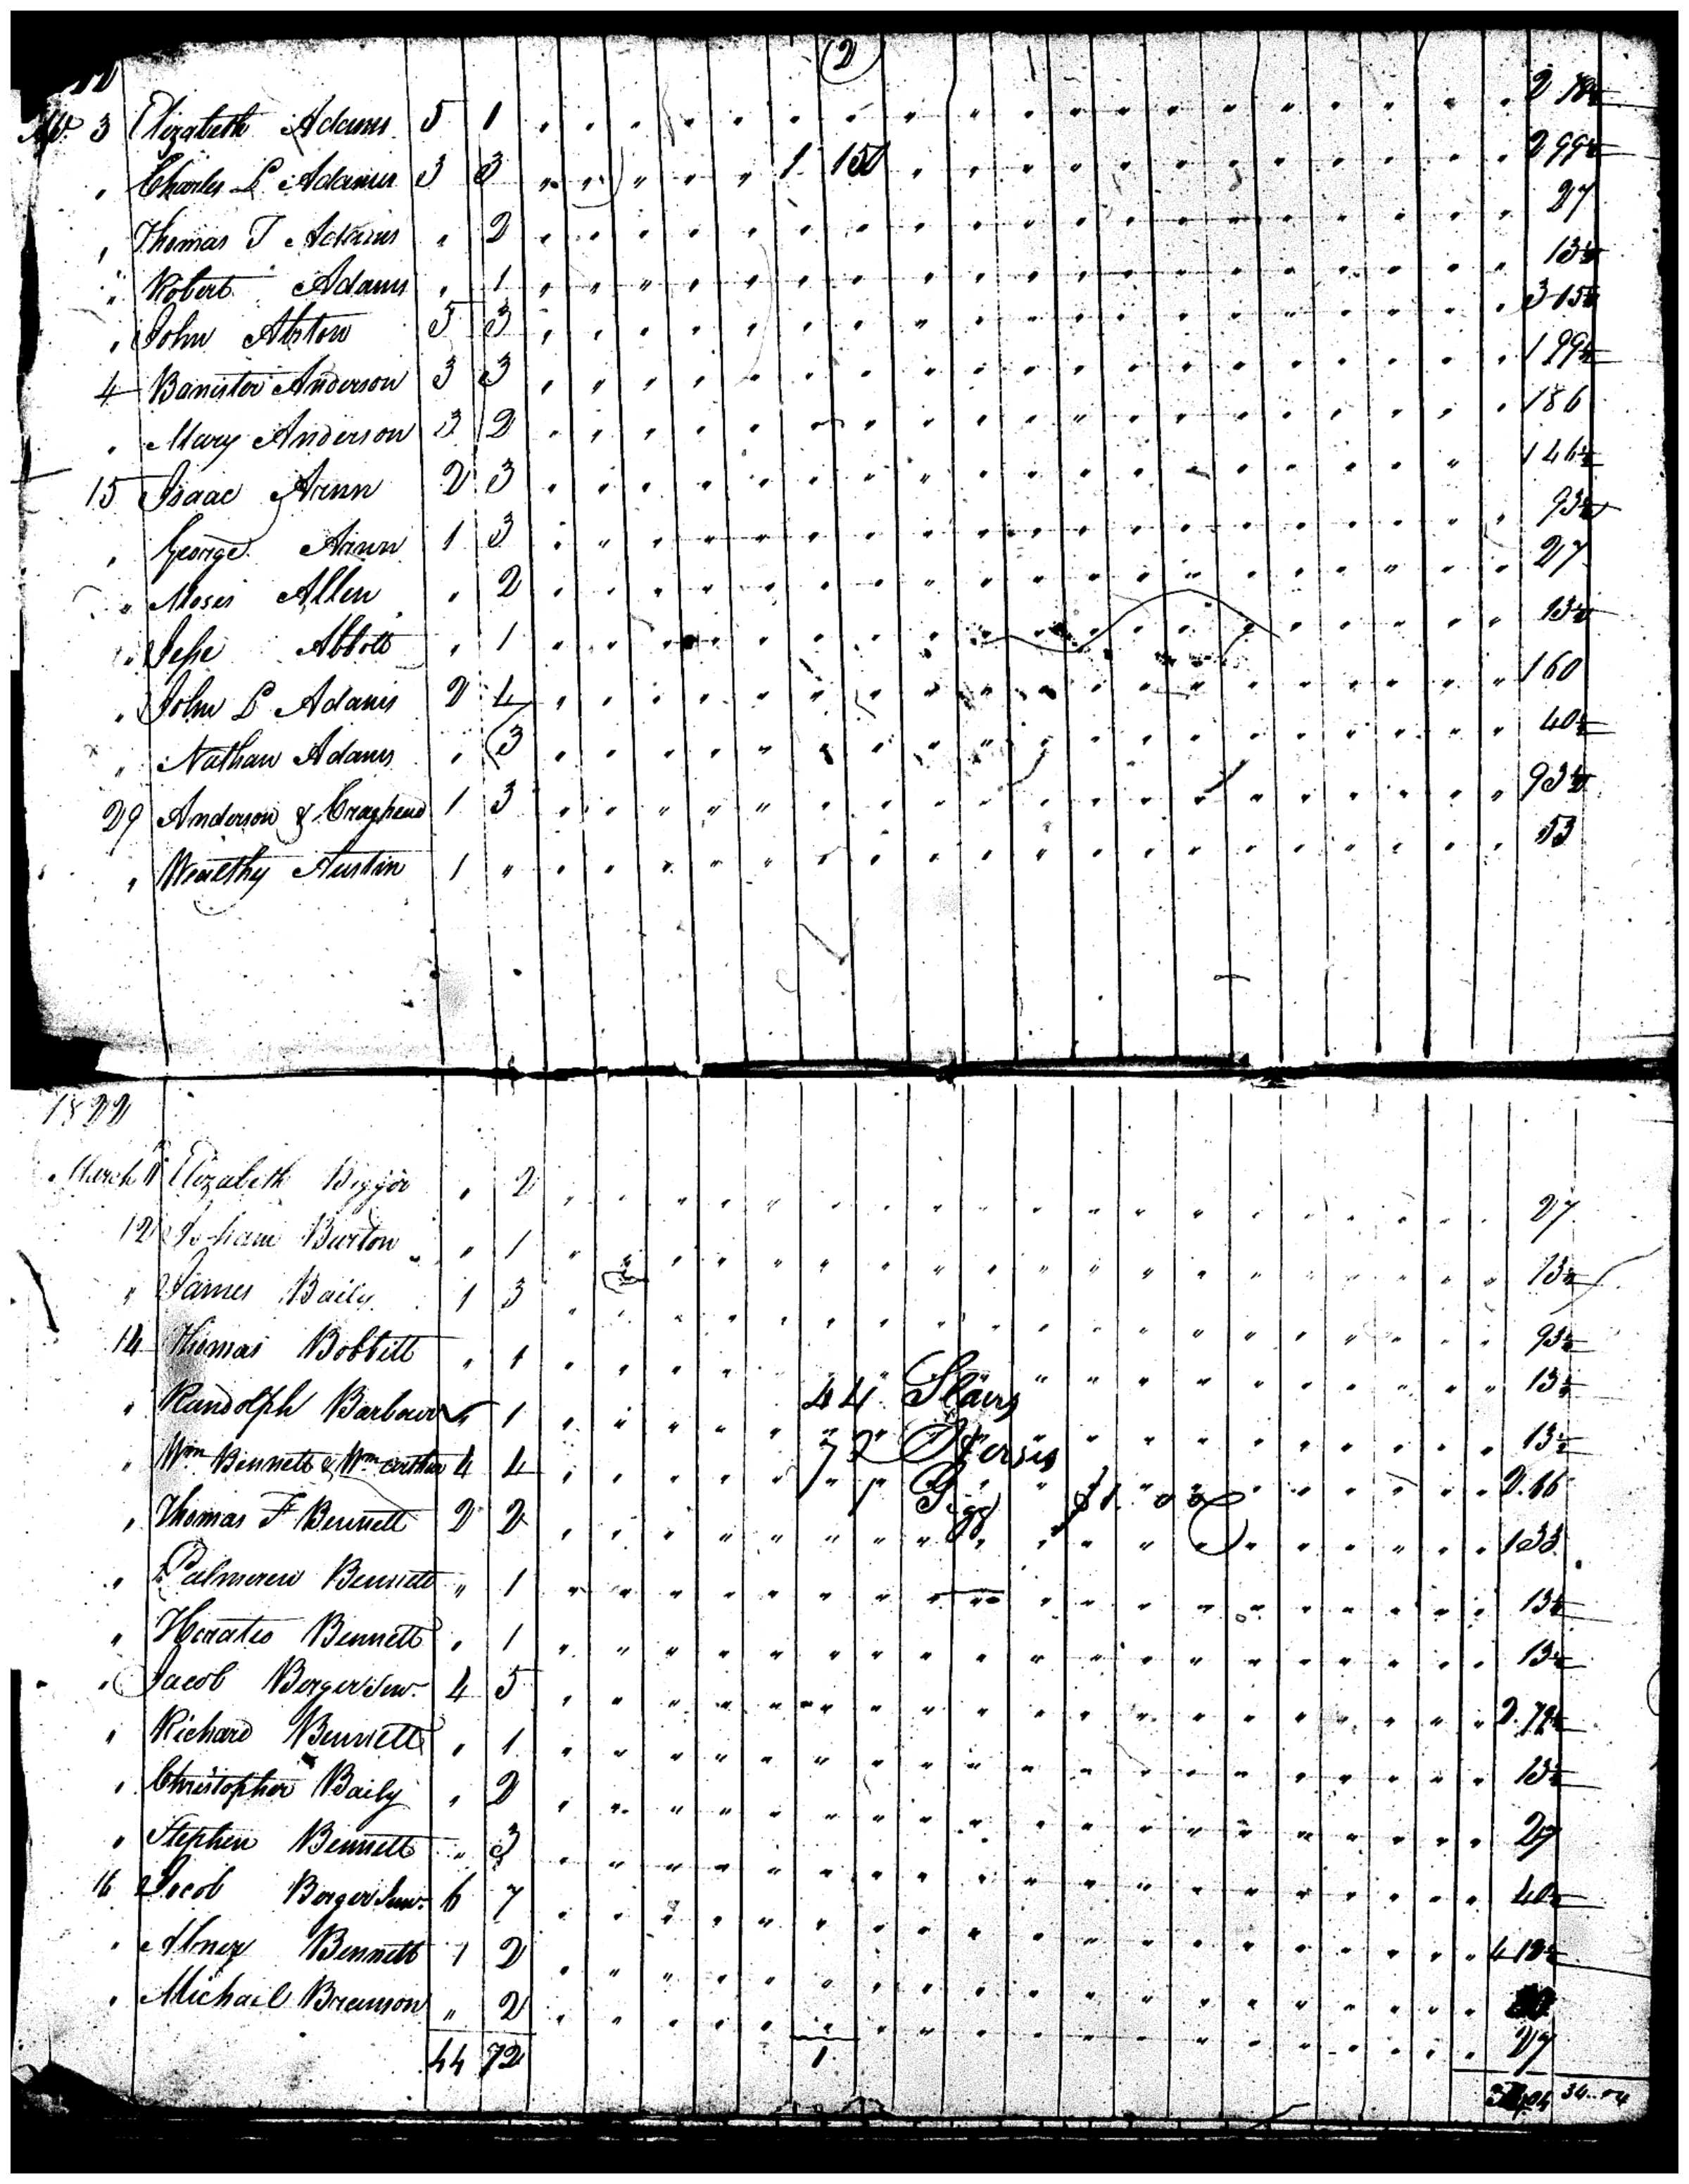 2
Ap. 3 Elizabeth Adams 5 1 " " " " " " " " " " " " " " " " " " 2 78½
" Charles L Adams 3 3 " " " " " 1 150 " " " " " " " " " " " 2 99½
" Thomas T Adams " 2 " " " " " " " " " " " " " " " " " " 27
" Robert Adams " 1 " " " " " " " " " " " " " " " " " " 13½
" John Abston 5 3 " " " " " " " " " " " " " " " " " " 3 15½
4 Banister Anderson 3 3 " " " " " " " " " " " " " " " " " " 1 99½
" Mary Anderson 3 2 " " " " " " " " " " " " " " " " " " 186
15 Isaac Arnn 2 3 " " " " " " " " " " " " " " " " " " 1 46½
" George Arnn 1 3 " " " " " " " " " " " " " " " " " " 93½
" Moses Allen " 2 " " " " " " " " " " " " " " " " " " 27
" Jesse Abbott " 1 " " " " " " " " " " " " " " " " " " 13½
" John L Adams 2 4 " " " " " " " " " " " " " " " " " " 160
" Nathan Adams " 3 " " " " " " " " " " " " " " " " " " 40½
29 Anderson & Craghead 1 3 " " " " " " " " " " " " " " " " " " 93½
" Wealthy Austin 1 " " " " " " " " " " " " " " " " " " " 53
1822
March 11 Elizabeth Bigger " 2 " " " " " " " " " " " " " " " " " " 27
12 Burton " 1 " " " " " " " " " " " " " " " " " " 13½
" James Baily 1 3 " " " " " " " " " " " " " " " " " " 93½
14 Thomas Bobbitt " 1 " " " " " " " " " " " " " " " " " " 13½
" Randolph Barbour " 1 " " " " " " " " " " " " " " " " " " 13½
44 Slaves
" Wm Bennett & Wm Arthur 4 4 " " " " " " " " " " " " " " " " " " 2.66
72 Horses
" Thomas F Bennett 2 2 " " " " " " " " " " " " " " " " " " 133
1 Gigg $1.00
" Palmerin Bennett " 1 " " " " " " " " " " " " " " " " " " 13½
" Horatio Bennett " 1 " " " " " " " " " " " " " " " " " " 13½
" Jacob Berger Jun. 4 5 " " " " " " " " " " " " " " " " " " 2.79½
" Richard Bennett " 1 " " " " " " " " " " " " " " " " " " 13½
" Christopher Baily " 2 " " " " " " " " " " " " " " " " " " 27
" Stephen Bennett " 3 " " " " " " " " " " " " " " " " " " 40½
16 Jacob Berger Senr. 6 7 " " " " " " " " " " " " " " " " " " 4 12½
" Abner Bennett 1 2 " " " " " " " " " " " " " " " " " " 80
" Michail Branson " 2 " " " " " " " " " " " " " " " " " " 27
44 72 1 34.04 34..04